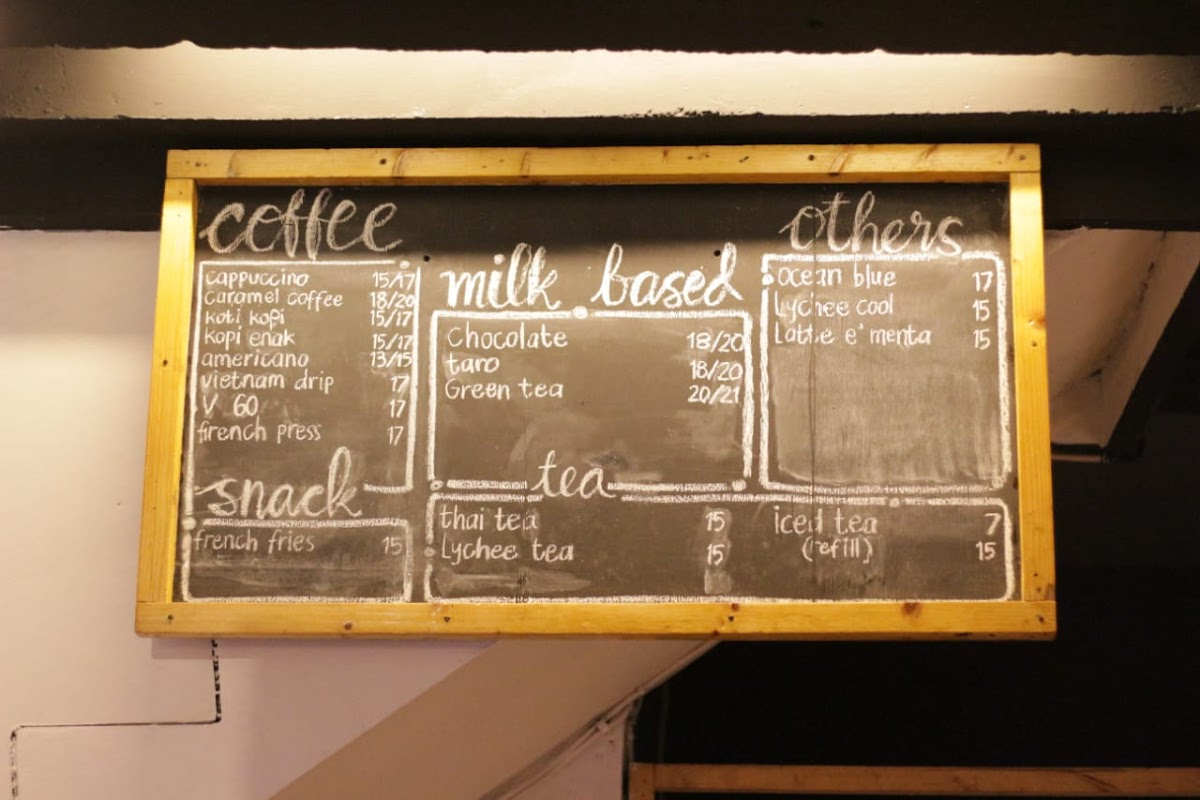 coffee
cappuccino 15/17
caramel coffee 18/20
koti kopi 15/17
kopi enak 15/17
americano 13/15
vietnam drip 17
V 60 17
french press 17
snack
french fries 15
milk based
Chocolate 18/20
taro 18/20
Green tea 20/21
others
ocean blue 17
Lychee cool 15
Latte e' menta 15
tea
thai tea 15
Lychee tea 15
iced tea 7
(refill) 15